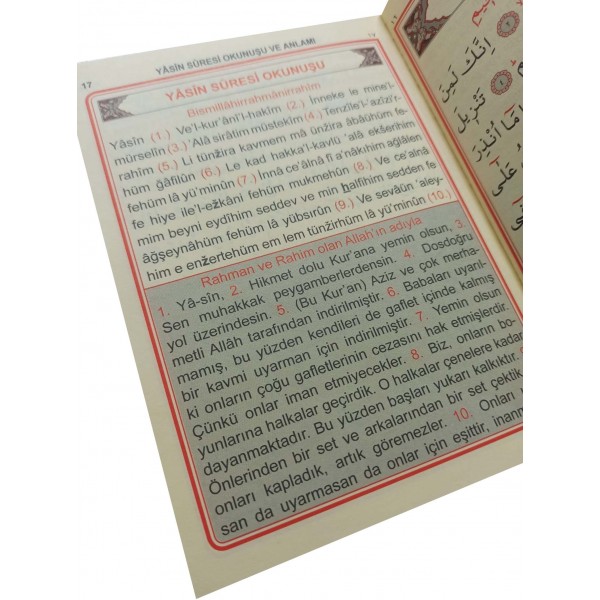 17 YÂSİN SÛRESİ OKUNUŞU VE ANLAMI ١٧
YÂSİN SÛRESİ OKUNUŞU
Bismillâhirrahmânirrahîm
Yâsîn (1.) Ve'l-kur'âni'l-hakîm (2.) İnneke le mine'l-
mürselîn (3.) 'Alâ sirâtim müstekîm (4.) Tenzîle'l-'azîzi'r-
rahîm (5.) Li tünzira kavmem mâ ünzira âbâühüm fe-
hüm ğâfilûn (6.) Le kad hakka'l-kavlü 'alâ ekšerihim
fehüm lâ yü'minûn (7.) İnnâ ce'alnâ fî a'nâkihim ağlâlen
fe hiye ile'l-ežkâni fehüm mukmehûn (8.) Ve ce'alnâ
mim beyni eydîhim seddev ve min halfihim sedden fe
âğşeynâhüm fehüm lâ yübsırûn (9.) Ve sevâün 'aley-
him e enžertehüm em lem tünžirhüm lâ yü'minûn (10.)
Rahman ve Rahim olan Allah'ın adıyla
1. Yâ-sîn, 2. Hikmet dolu Kur'ana yemin olsun, 3.
Sen muhakkak peygamberlerdensin. 4. Dosdoğru
yol üzerindesin. 5. (Bu Kur'an) Aziz ve çok merha-
metli Allâh tarafından indirilmiştir. 6. Babaları uyarıl-
mamış, bu yüzden kendileri de gaflet içinde kalmış
bir kavmi uyarman için indirilmiştir. 7. Yemin olsun
ki onların çoğu gafletlerinin cezasını hak etmişlerdir.
Çünkü onlar iman etmiyecekler. 8. Biz, onların bo-
yunlarına halkalar geçirdik. O halkalar çenelere kadar
dayanmaktadır. Bu yüzden başları yukarı kalkıktır.
Önlerinden bir set ve arkalarından bir set çektik
onları kapladık, artık göremezler. 10. Onları
san da uyarmasan da onlar için eşittir, inanm
١٧
اِنَّكَ لَمِنَ
تَنْزِيلَ
مَا اُنْذِرَ
عَلٰى